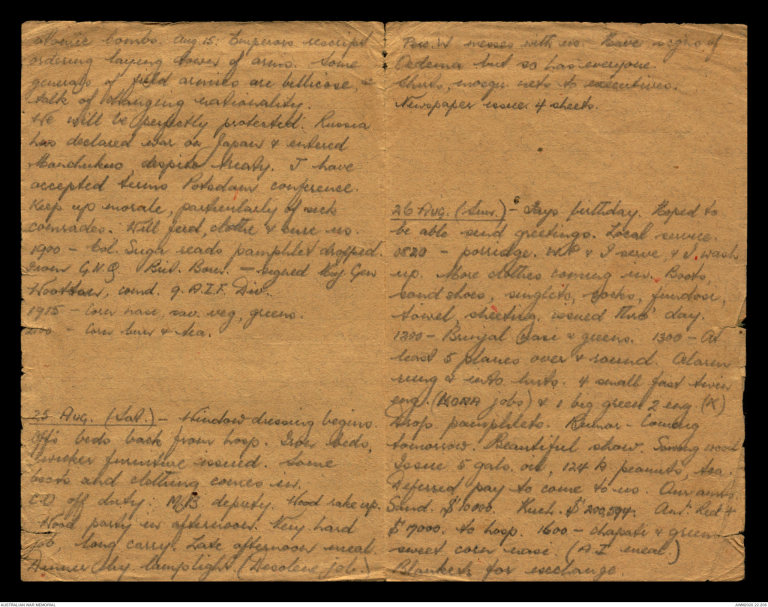 atomic bombs. Aug 15: Emperors rescript
ordering laying down of arms. Some
generals of field armies are bellicose, &
talk of changing nationality.
We will be perfectly protected. Russia
has declared war on Japan & entered
Manchukuo despite treaty. I have
accepted terms Potsdam conference.
Keep up morale, particularly of sick
comrades. Will feed, clothe & cure us.
1900 - Col. Suga reads pamphlet dropped.
from G.H.Q. Brit. Born. - signed by Gen
Wootten, comd. 9 A.I.F. Div.
1915 - Corn nase, sav. veg, greens.
- Corn & tea.
25 Aug. (Sat.) - Window dressing begins.
Offs beds back from hosp. Iron beds,
wicker furniture issued. Some
boots and clothing comes in.
CO off duty. deputy. Wood rake up.
Wood party in afternoon. Very hard
job long carry. Late afternoon meal.
Dinner by lamplight. (Desolene job)
messes with us. Have signs of
Oedema but so has everyone.
Shirts, mosqu. nets to executives.
Newspaper issue 4 sheets.
26 Aug. (Sun.) - Jays birthday. Hoped to
be able send greetings. Local service.
0820 - porridge. & I serve, & I wash
up. More clothes coming in. Boots,
sandshoes, singlets, socks, fundosi,
towel, sheeting, issued thro' day.
1200 - Brinjal nasi & greens. 1300 - At
least 5 planes over & around. Alarm
rung & into huts. 4 small fast twin
eng. jobs) & 1 big green 2 eng (X)
Drop pamphlets. Rumor - Coming
tomorrow. Beautiful show.
Issue 5 gals. oil, 124 lb peanuts, tea.
Deferred pay to come to us.
$ to hosp. 1600 - chapati & green
sweet corn nase. (A.I. meal)
Blankets for exchange.